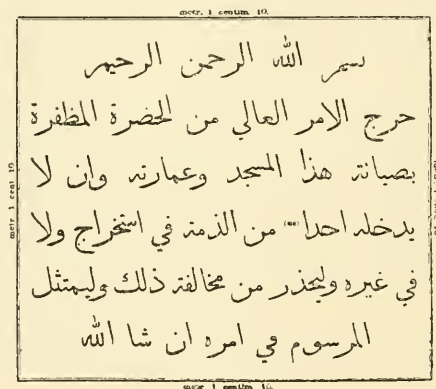 metr. 1 centim. 10.
بسم الله الرحمن الرحيم
حرج الامر العالي من الحضرة المظفرة
بصيانة هذا المسجد وعمارته وان لا
يدخله احدا (sic) من الذمة في استخراج ولا
في غيره وليحذر من مخالفة ذلك وليمتثل
المرسوم في امره ان شا الله
metr. 1 cent. 10.
metr. 1 centim. 10.